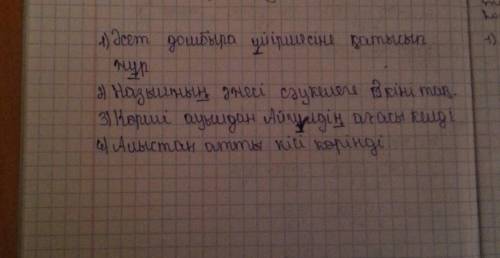 1) Әсет домбыра үйірмесіне қатысып
жүр
2) Назымның әжесі сәукелеге үкіні тақ.
3) Көрші ауылдан Айгүлдің ағасы келді
4) Алыстан атты кісі көрінді